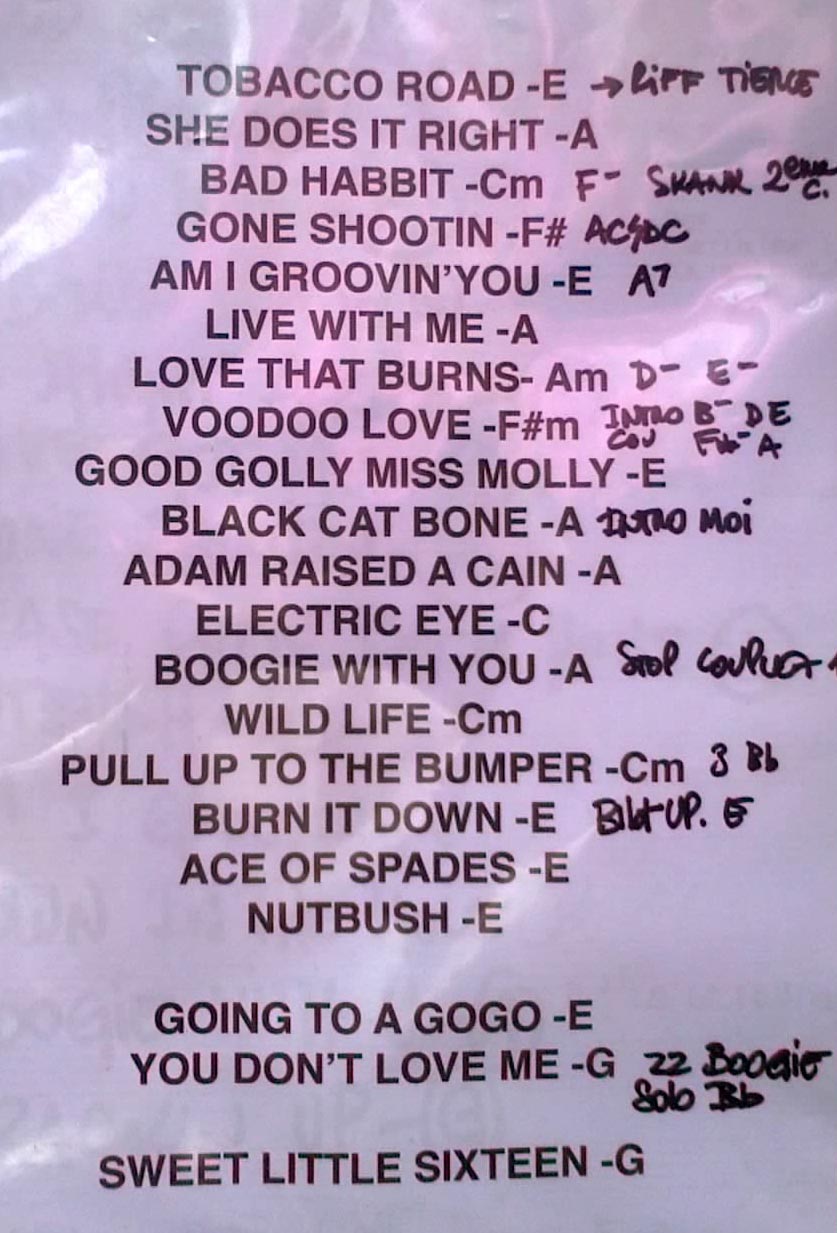 TOBACCO ROAD -E → RIFF TIERCE
SHE DOES IT RIGHT -A
BAD HABBIT -Cm F- SKANK 2eme C.
GONE SHOOTIN -F# AC/DC
AM I GROOVIN'YOU -E A7
LIVE WITH ME -A
LOVE THAT BURNS- Am D- E-
VOODOO LOVE -F#m INTRO B- D E
COU F#- A
GOOD GOLLY MISS MOLLY -E
BLACK CAT BONE -A INTRO MOI
ADAM RAISED A CAIN -A
ELECTRIC EYE -C
BOOGIE WITH YOU -A STOP COUPLET
WILD LIFE -Cm
PULL UP TO THE BUMPER -Cm 3 Bb
BURN IT DOWN -E UP.
ACE OF SPADES -E
NUTBUSH -E
GOING TO A GOGO -E
YOU DON'T LOVE ME -G 22 BOOGIE
Solo Bb
SWEET LITTLE SIXTEEN -G